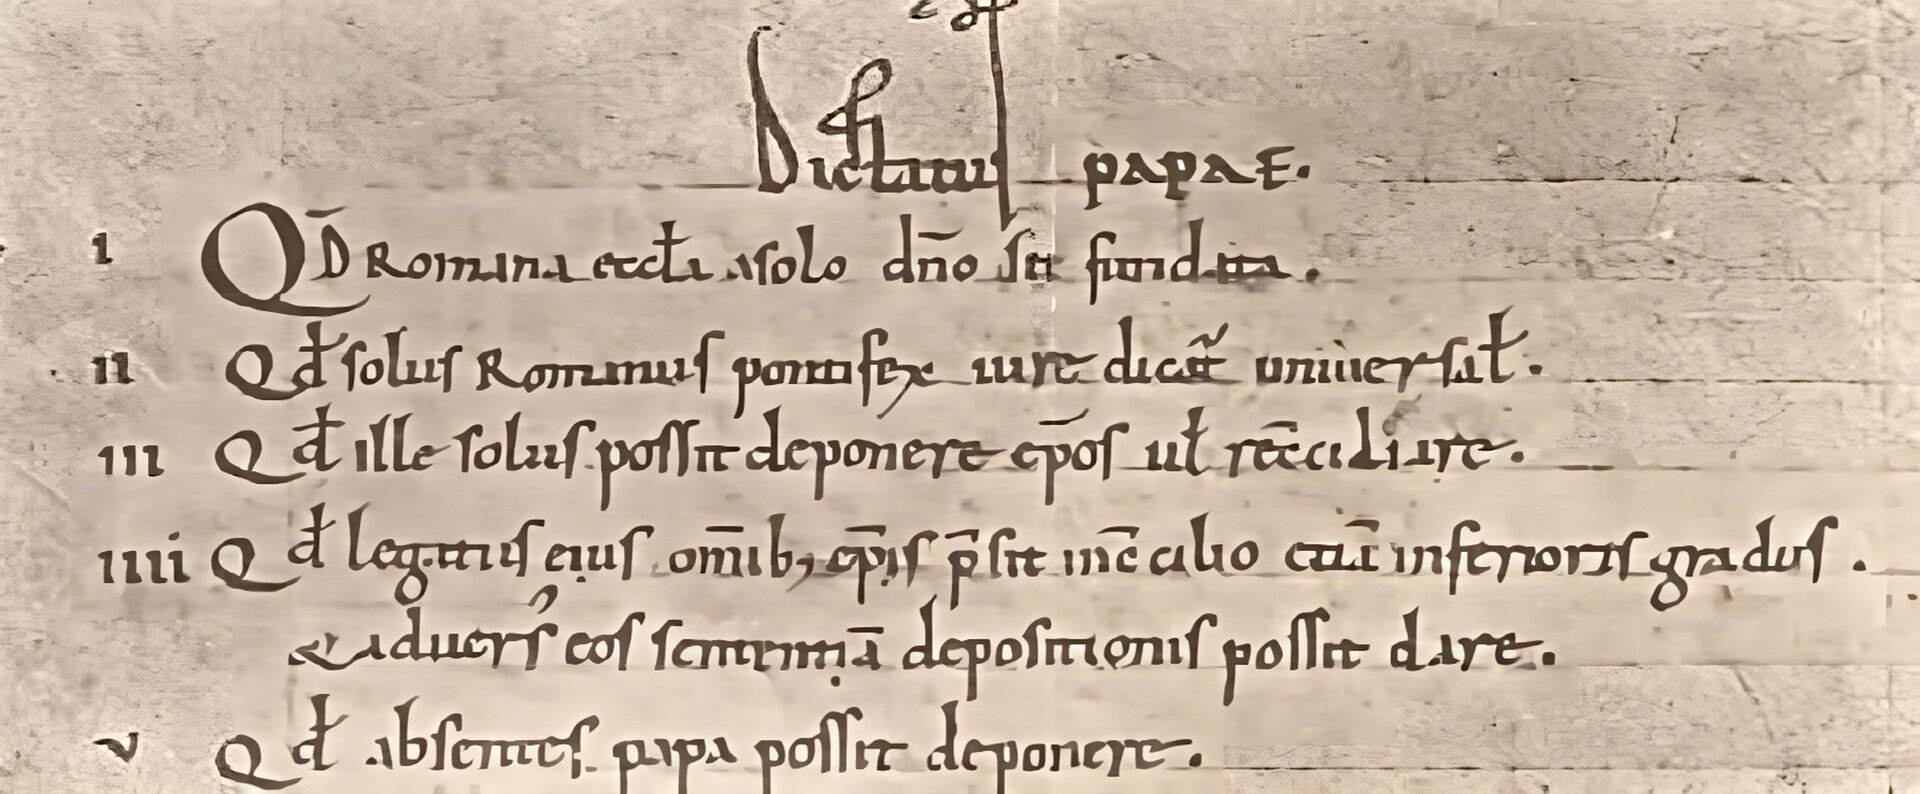 Dictatus papae.
I QD Romana eccła asolo dn̄o sit fundata.
II Qđ solus Romanus pontifex iure dicat̃ uniuersał.
III Qđ ille solus possit deponere ep̄os uł rec̄ciliare.
IIII Qđ legatus eius om̄ib; ep̄is p̄sit inc̄cilio etiā inferioris gradus.
& aduersʼ eos sententiā depositionis possit dare.
V Qđ absentes papa possit deponere.